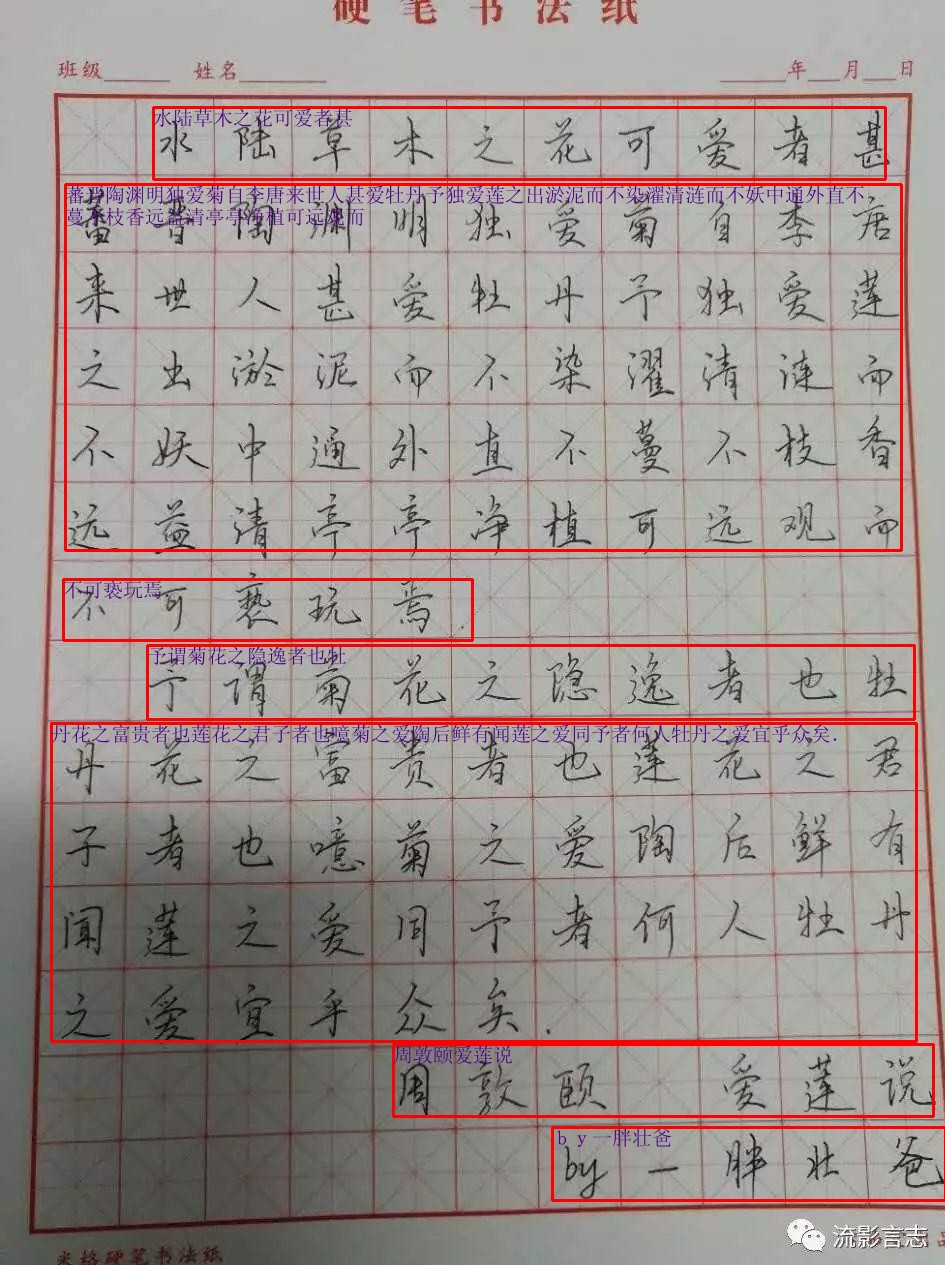 硬笔书法纸
班级 姓名 年 月 日
水陆草木之花可爱者甚
水陆草木之花可爱者甚
蕃晋陶渊明独爱菊自李唐来世人甚爱牡丹予独爱莲之出淤泥而不染濯清涟而不妖中通外直不
蔓不枝香远益清亭亭净植可远观而
蕃晋陶渊明独爱菊自李唐
来世人甚爱牡丹予独爱莲
之出淤泥而不染濯清涟而
不妖中通外直不蔓不枝香
远益清亭亭净植可远观而
不可亵玩焉
不可亵玩焉.
予谓菊花之隐逸者也牡
予谓菊花之隐逸者也牡
丹花之富贵者也莲花之君子者也噫菊之爱陶后鲜有闻莲之爱同予者何人牡丹之爱宜乎众矣.
丹花之富贵者也莲花之君
子者也噫菊之爱陶后鲜有
闻莲之爱同予者何人牡丹
之爱宜乎众矣.
周敦颐爱莲说
周敦颐 爱莲说
by一胖壮爸
by一胖壮爸
流影言志
米格硬笔书法纸 品